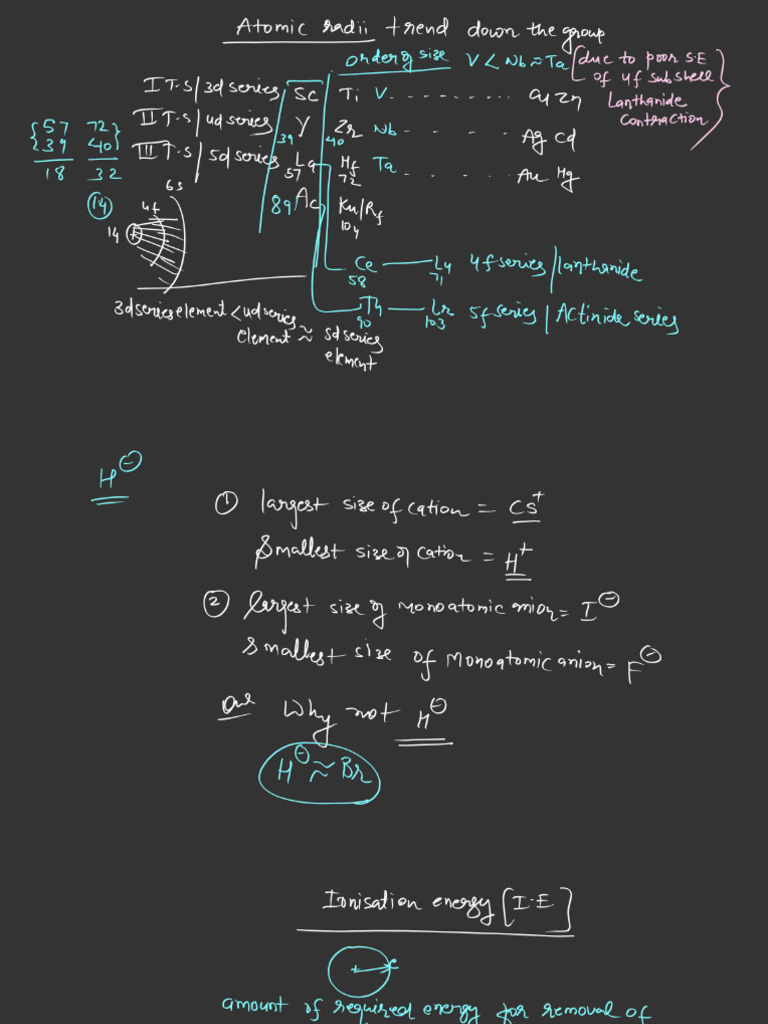 Atomic radii trend down the group
order of size V < Nb ≈ Ta (due to poor S.E
of 4f subshell
Lanthanide
Contraction)
I T.S / 3d series Sc Ti V ......... Cu Zn
II T.S / 4d series Y Zr Nb ...... Ag Cd
39 40
III T.S / 5d series La Hf Ta ..... Au Hg
57 72
{57 72}
{39 40}
18 32
14
6s
4f
14
89 Ac Ku/Rf
104
Ce — Lu 4f series / lanthanide
58 71
Th — Lr 5f series / Actinide series
90 103
3d series element < 4d series
element ≈ 5d series
element
H⊖
① largest size of cation = Cs⁺
Smallest size of cation = H⁺
② largest size of monoatomic anion = I⊖
smallest size of monoatomic anion = F⊖
Que Why not H⊖
H⊖ ≈ Br
Ionisation energy [I.E]
e
amount of required energy for removal of